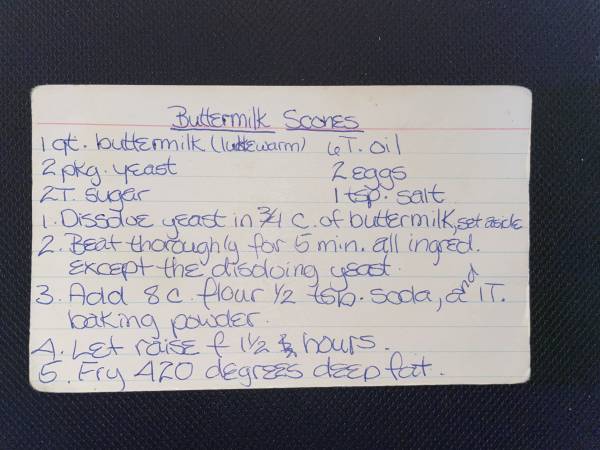 Buttermilk Scones
1 qt. buttermilk (lukewarm) 6 T. oil
2 pkg. yeast 2 eggs
2 T. sugar 1 tsp. salt
1. Dissolve yeast in 3/4 c. of buttermilk, set aside
2. Beat thoroughly for 5 min. all ingred.
except the disolving yeast.
3. Add 8 c. flour 1/2 tsp. soda, and 1 T.
baking powder.
4. Let raise f 1 1/2 hours.
5. Fry 420 degrees deep fat.